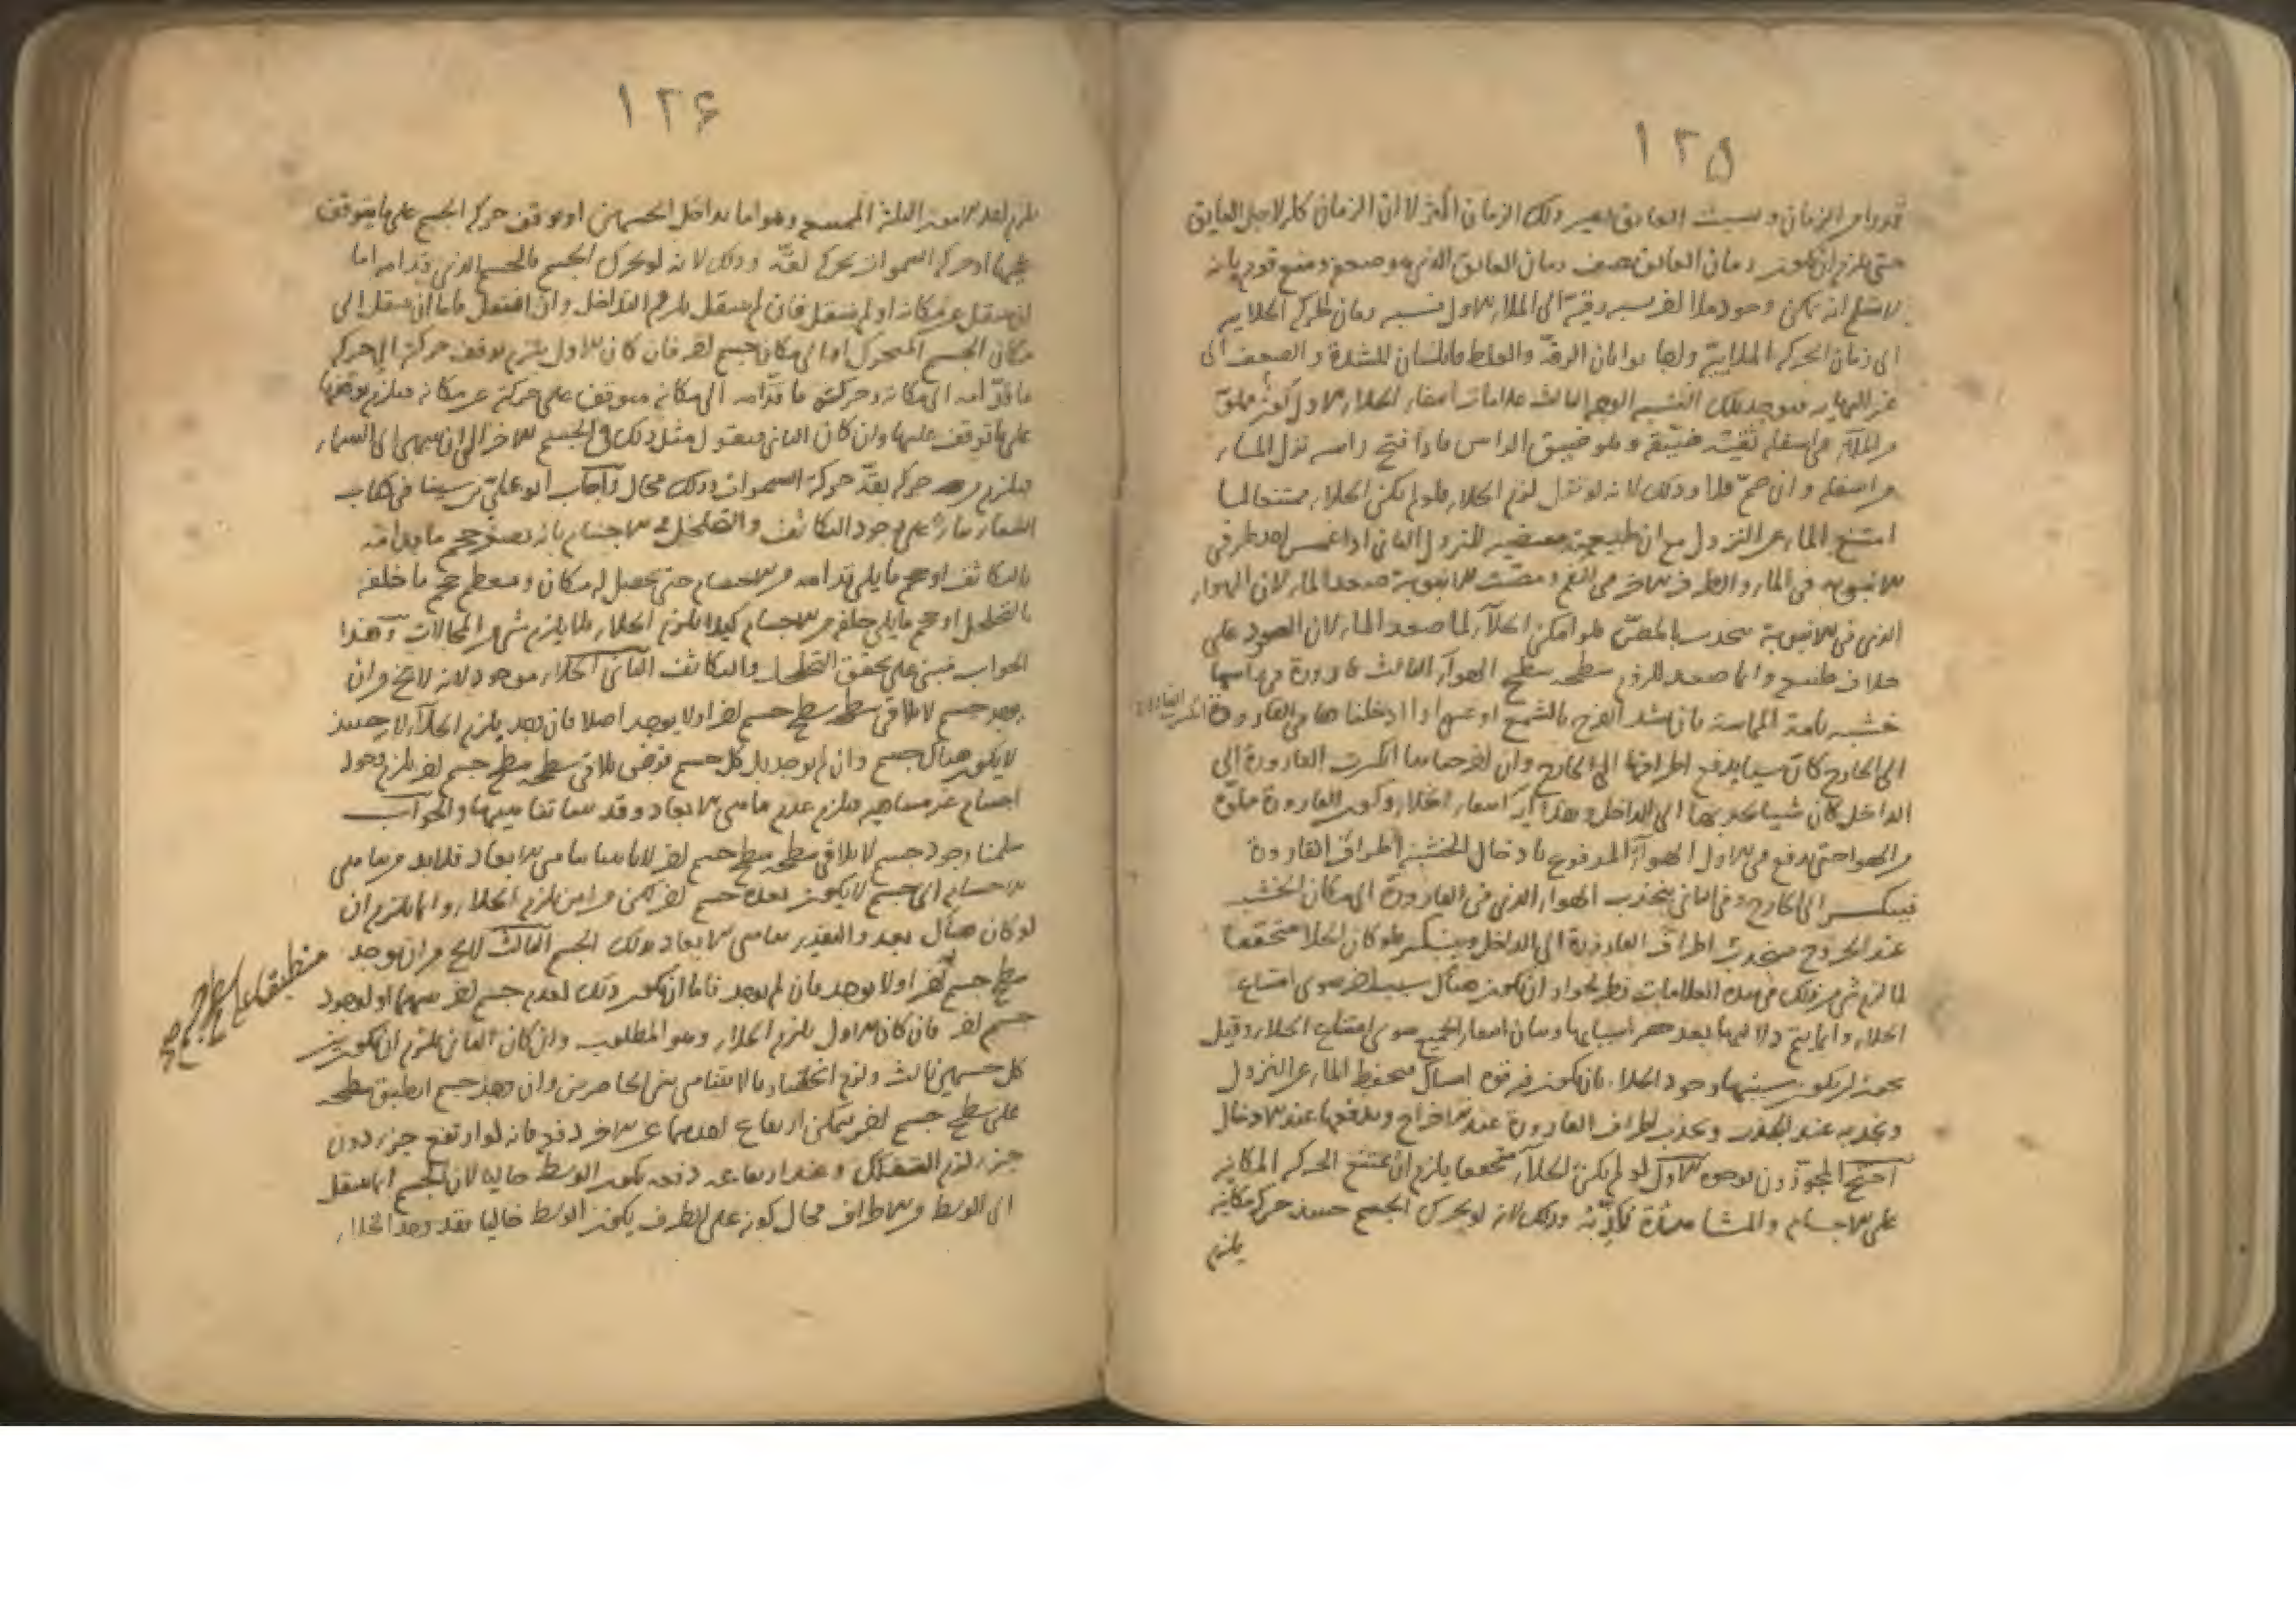 ١٢٥
قدر من الزمان وبسبب العايق يصير ذلك الزمان اكثر لا ان الزمان كله لاجل العايق
حتى يلزم ان يكون زمان العايق نصف زمان العايق الذي هو ضعفه ومنع قوم بانه
لا نسلم انه يمكن وجود ملاء اخر نسبة رقته الى الملاء الاول كنسبة زمان الحركة الخلائية
الى زمان الحركة الملائية وانما لو كان الرقة والغلظ قابلتان للشدة والضعف الى
غير النهاية فيوجد تلك النسبة الوجه الثالث علامات امتناع الخلاء الاول كوز مملو
من الماء في اسفله ثقبة ضيقة وهو ضيق الراس فاذا فتح راسه نزل الماء
من اسفله وان ضم فلا وذلك لانه لو نزل لزم الخلاء فلو لم يكن الخلاء ممتنعا لما
امتنع الماء عن النزول مع ان طبيعته مقتضية للنزول الثاني اذا غمس احد طرفي
الانبوبة في الماء والطرف الاخر في الفم ومصت الانبوبة صعد الماء لان الهواء
الذي في الانبوبة ينجذب بالمص فلو امكن الخلاء لما صعد الماء لان الصعود على
خلاف طبعه وانما صعد للزوم سطحه سطح الهواء الثالث قارورة في راسها
خشبة تامة المماسة بان يشد الفرج بالشمع او غيره اذا ادخلناها في القارورة انكسرت القارورة
الى الخارج كان شيئا يدفع اطرافها الى الخارج وان اخرجناها انكسرت القارورة الى
الداخل كان شيئا يجذبها الى الداخل وهذا لامتناع الخلاء وكون القارورة مملوة
من الهوا حتى يدفع في الاول الهواء المدفوع بادخال الخشبة اطراف القارورة
فينكسر الى الخارج وفي الثاني ينجذب الهواء الذي في القارورة الى مكان الخشبة
عند الخروج فينجذب اطراف القارورة الى الداخل وينكسر فلو كان الخلا متحققا
لما لزم شي من ذلك في هذه العلامات نظر لجواز ان يكون هناك سبب اخر سوى امتناع
الخلاء وانما يتم دلالتها بعد حصر اسبابها وبيان امتناع الجميع سوى امتناع الخلاء وقيل
يجوز ان يكون سببها وجود الخلاء بان يكون فيه قوة امساك فيحفظ الماء عن النزول
ويجذبه عند الجذب ويجذب اطراف القارورة عند الاخراج ويدفعها عند الادخال
احتج المجوزون بوجوه الاول لو لم يكن الخلاء متحققا يلزم ان يمتنع الحركة المكانية
على الاجسام والمشاهدة تكذبه وذلك لانه لو تحرك الجسم حينئذ حركة مكانية
يلزم
١٢٦
يلزم احد الامور الثلثة الممتنعة وهو اما تداخل الجسمين او توقف حركة الجسم على ما يتوقف
عليها او حركة السموات بحركة بقة وذلك لانه لو تحرك الجسم فالجسم الذي قدامه اما
ان ينتقل عن مكانه او لم ينتقل فان لم ينتقل يلزم التداخل وان انتقل فاما ان ينتقل الى
مكان الجسم المتحرك او الى مكان جسم اخر فان كان الاول يلزم توقف حركته الى حركة
ما قدامه الى مكانه وحركة ما قدامه الى مكانه متوقف على حركته عن مكانه فيلزم توقفها
على ما توقف عليها وان كان الثاني فينقل مثل ذلك في الجسم الاخر الى ان ينتهي الى السماء
فيلزم من حركة بقة حركة السموات وذلك محال واجاب ابو علي بن سينا في كتاب
الشفاء بناء على وجود التكاثف والتخلخل في الاجسام بانه يصغر حجم ما قدامه
بالتكاثف او حجم ما يلي قدامه من الاجسام حتى يحصل له مكان ويعظم حجم ما خلفه
بالتخلخل او حجم ما يلي خلفه من الاجسام كيلا يلزم الخلاء فلا يلزم شي من المحالات وهذا
الجواب مبني على تحقق التخلخل والتكاثف الثاني الخلاء موجود لانه لا يخ من ان
يوجد جسم لا يلاقي سطحه سطح جسم اخر او لا يوجد اصلا فان وجد يلزم الخلاء لان حينئذ
لا يكون هناك جسم وان لم يوجد بل كل جسم فرض يلاقي سطحه سطح جسم اخر يلزم وجود
اجسام غير متناهية فيلزم عدم تناهي الابعاد وقد بينا تناهيها والجواب
سلمنا وجود جسم لا يلاقي سطحه سطح جسم اخر لانا بينا تناهي الابعاد فلا بد من تناهي
الاجسام الى جسم لا يكون بعده جسم اخر لكن من اين يلزم الخلاء وانما يلزم ان
لو كان هناك بعد والتقدير تناهي الابعاد بذلك الجسم الثالث لا يخ من ان يوجد
سطح جسم اخر او لا يوجد فان لم يوجد فاما ان يكون ذلك لعدم جسم اخر بينهما او لوجود
جسم اخر فان كان الاول يلزم الخلاء وهو المطلوب وان كان الثاني يلزم ان يكون بين
كل جسمين ثالث ولزم انحصار ما لا يتناهى بين الحاصرين وان وجد جسم انطبق سطحه
على سطح جسم اخر يمكن ارتفاع احدهما عن الاخر دفعة فانه لو ارتفع جزء دون
جزء لزم التفكك وعند ارتفاعه دفعة يكون الوسط خاليا لان الجسم انما ينتقل
الى الوسط من الاطراف فحال كونه على الطرف يكون الوسط خاليا فقد وجد الخلاء
منطبقا على سطح جسم